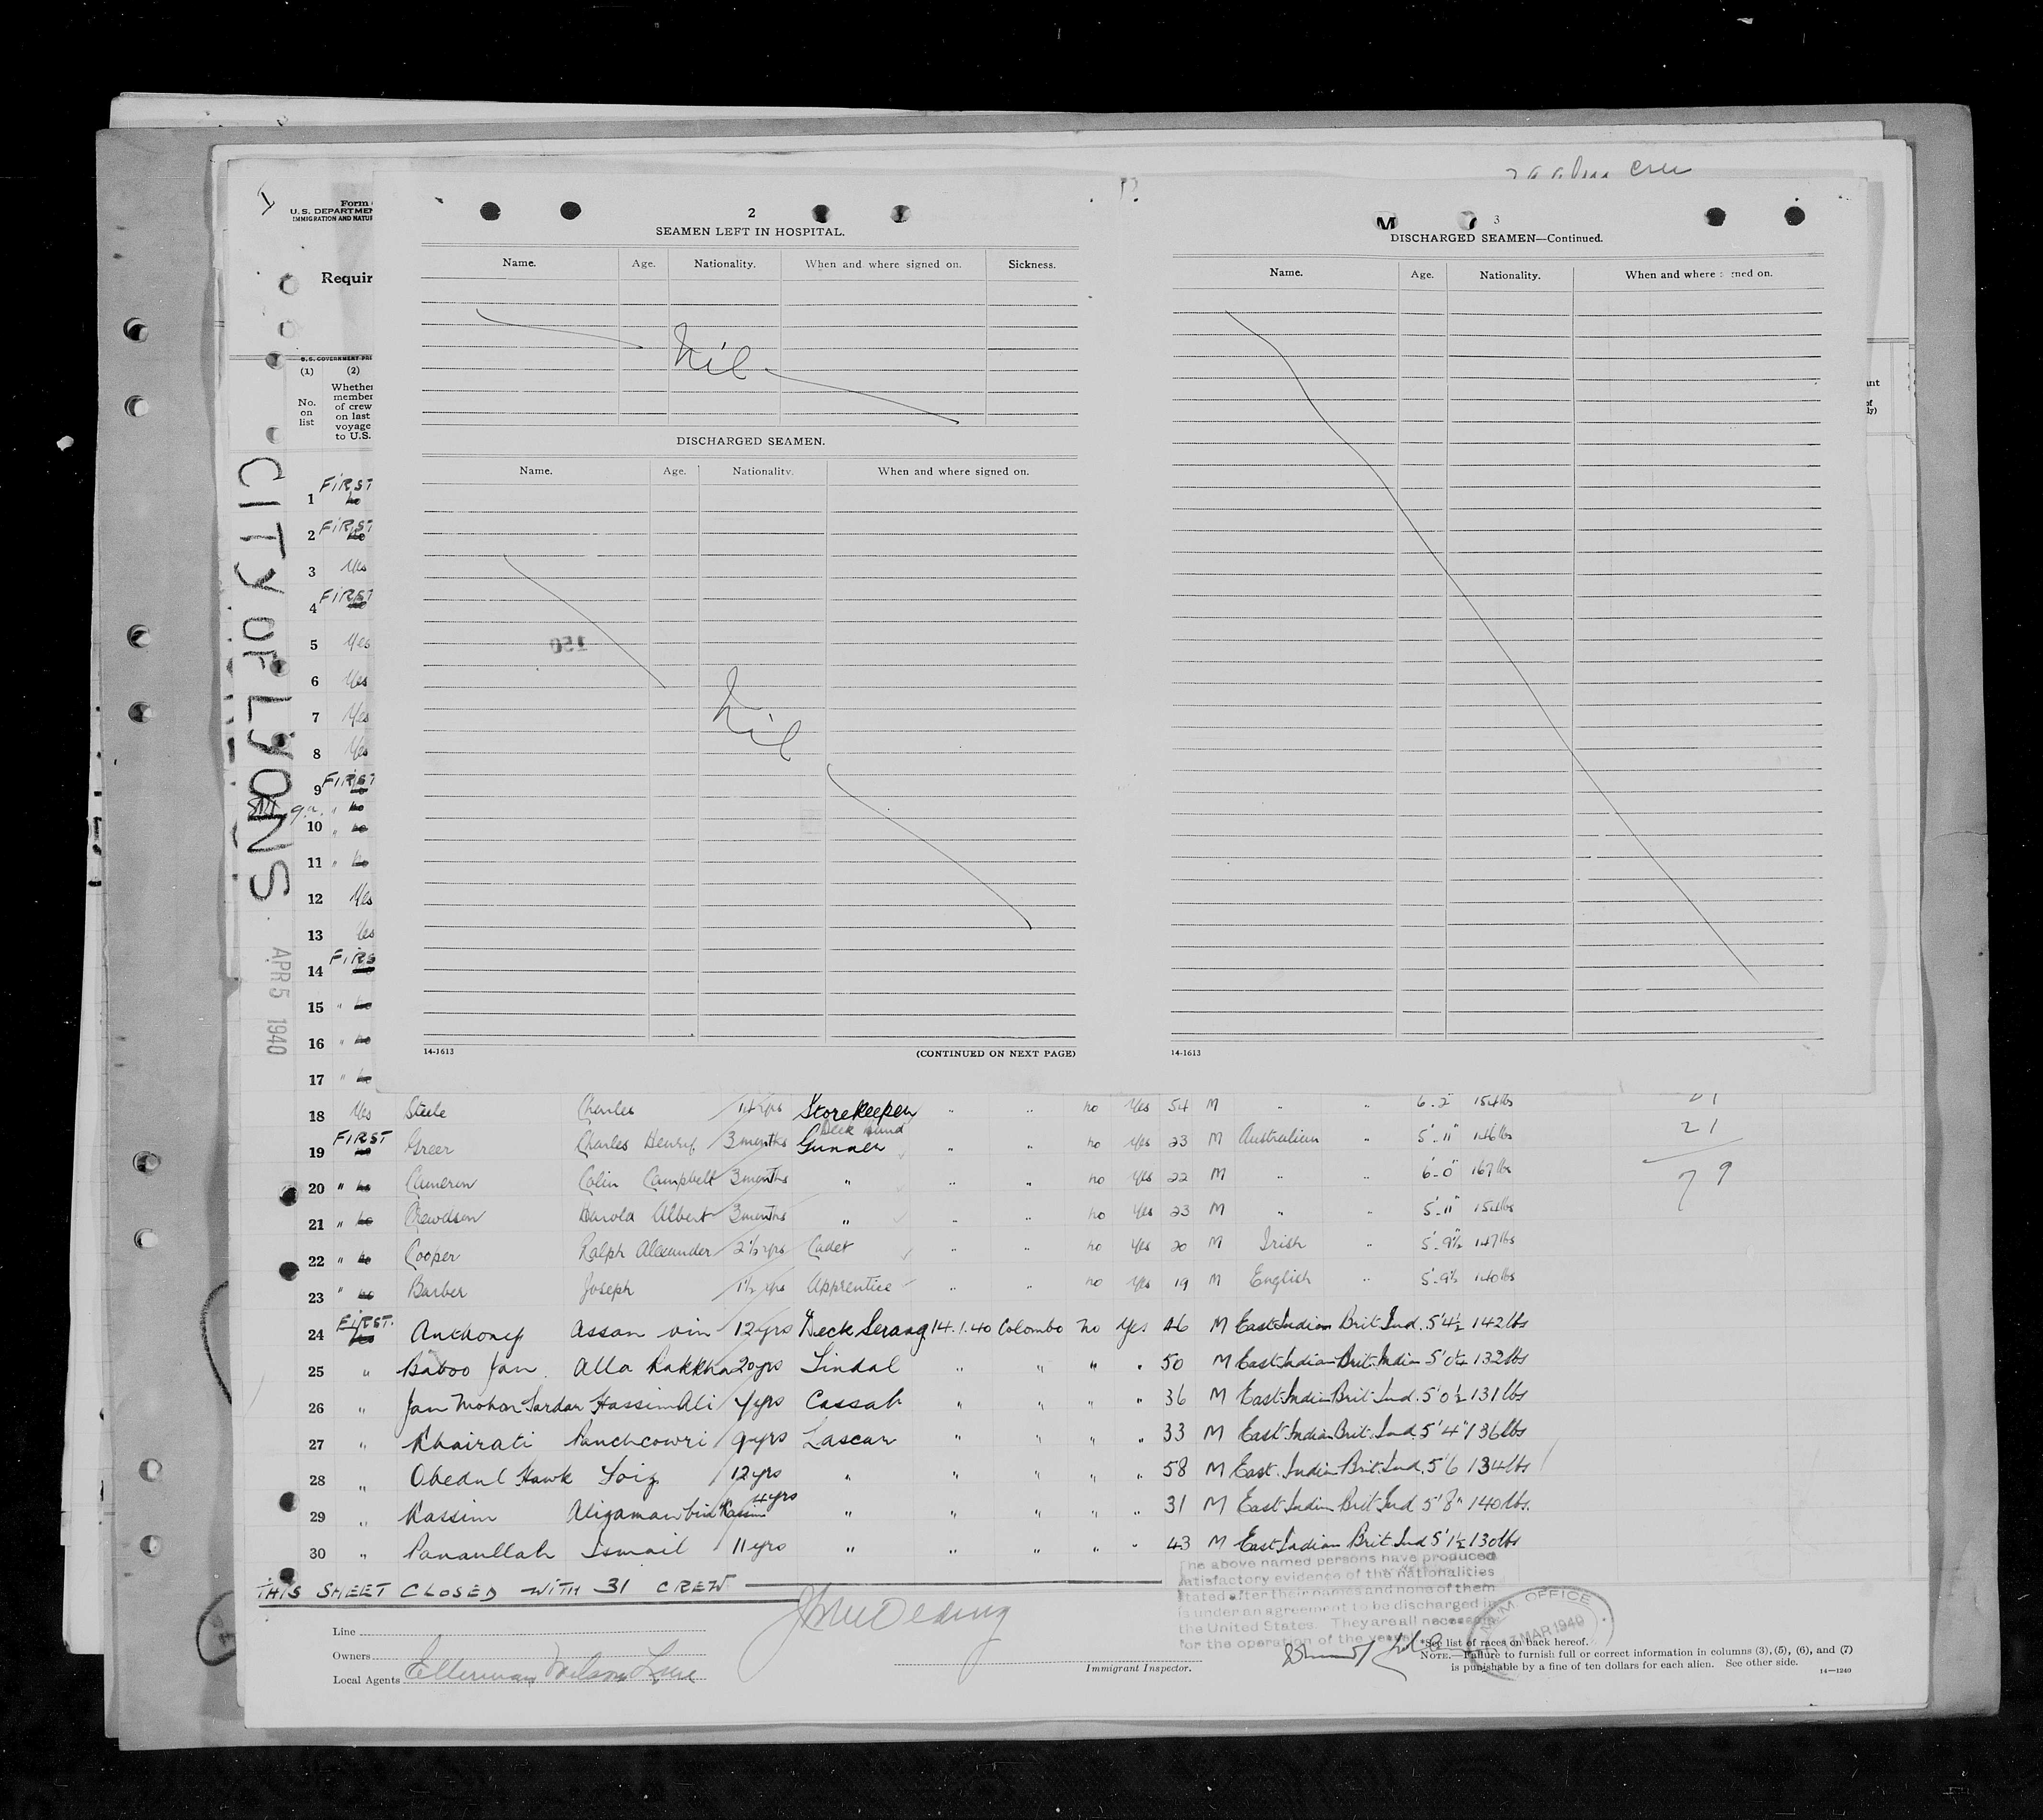 alien crew
Form
U.S. DEPARTMEN
IMMIGRATION AND NATUR
Requir
2
SEAMEN LEFT IN HOSPITAL.
Name. Age. Nationality. When and where signed on. Sickness.
Nil
DISCHARGED SEAMEN.
Name. Age. Nationality. When and where signed on.
150
Nil
14-1613 (CONTINUED ON NEXT PAGE)
3
DISCHARGED SEAMEN—Continued.
Name. Age. Nationality. When and where signed on.
14-1613
U.S. GOVERNMENT PRI
(1) (2)
No. on list
Whether
member
of crew
on last
voyage
to U.S.
CITY OF LYONS
APR 5 1940
1 FIRST no
2 FIRST no
3 Yes
4 FIRST no
5 Yes
6 Yes
7 Yes
8 Yes
9 FIRST no
9a " no
10 " no
11 " no
12 Yes
13 Yes
14 FIRS
15 " no
16 " no
17 " no
18 Yes Steele Charles 14 yrs Storekeeper " " no Yes 54 M " " 6-2" 154 lbs
19 FIRST no Greer Charles Henry 3 months Deck Hand Gunner " " no yes 23 M Australian " 5'-11" 146 lbs 21
20 " no Cameron Colin Campbell 3 months " " " no yes 22 M " " 6'-0" 167 lbs 79
21 " no Crewdson Harold Albert 3 months " " " no Yes 23 M " " 5'-11" 154 lbs
22 " no Cooper Ralph Alexander 2½ yrs Cadet " " no Yes 20 M Irish " 5'-9½ 147 lbs
23 " no Barber Joseph 1½ yrs Apprentice " " no Yes 19 M English " 5'-9½ 140 lbs
24 FIRST. Yes Anthony Assan vin 12 yrs Deck Serang 14.1.40 Colombo no Yes 46 M East Indian Brit. Ind. 5'4½ 142 lbs
25 " Baboo Jan Alla Rakkha 20 yrs Tindal " " " " 50 M East Indian Brit. Indian 5'0½ 132 lbs
26 " Jan Mohar Sardar Hassim Ali 4 yrs Cassab " " " " 36 M East Indian Brit. Ind. 5'0½ 131 lbs
27 " Khairati Panchcowri 9 yrs Lascar " " " " 33 M East Indian Brit. Ind. 5'4" 136 lbs
28 " Obedul Hawk Foiz 12 yrs " " " " " 58 M East Indian Brit. Ind. 5'6 134 lbs
29 " Kassim Aligaman bin Kassim 4 yrs " " " " " 31 M East Indian Brit. Ind. 5'8" 140 lbs.
30 " Panaullah Ismail 11 yrs " " " " " 43 M East Indian Brit. Ind 5'1½ 130 lbs
THIS SHEET CLOSED WITH 31 CREW
The above named persons have produced
satisfactory evidence of the nationalities
stated after their names and none of them
is under an agreement to be discharged in
the United States. They are all necessary
for the operation of the vessel
M.M. OFFICE
MAR 1940
Line
Owners
Local Agents Ellerman Wilson Line
Immigrant Inspector.
*See list of races on back hereof.
NOTE.—Failure to furnish full or correct information in columns (3), (5), (6), and (7)
is punishable by a fine of ten dollars for each alien. See other side.
14—1240